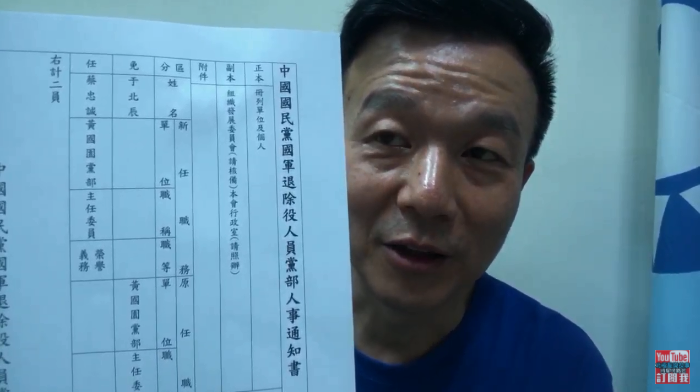 中國國民黨國軍退除役人員黨部人事通知書
正本 冊列單位及個人
副本 組織發展委員會(請核備)本會行政室(請照辦)
附件
區分 姓名 新任職務 單位 職稱 職等 原任職 單位 職
免 于北辰 黃國園黨部 主任委
任 蔡忠誠 黃國園黨部 主任委員 榮譽義務
右計二員
中國國民黨國軍退除役人員
YouTube
訂閱我